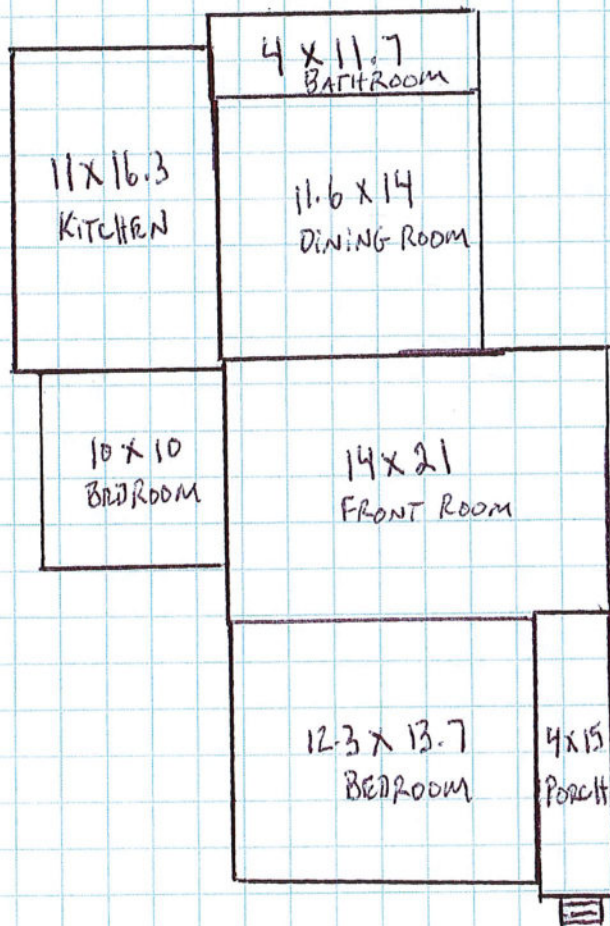 4 X 11.7
BATHROOM
11 X 16.3
KiTCHEN
11.6 X 14
DiNiNG ROOM
10 X 10
BEDROOM
14 X 21
FRONT ROOM
12.3 X 13.7
BEDROOM
4X15
PORCH